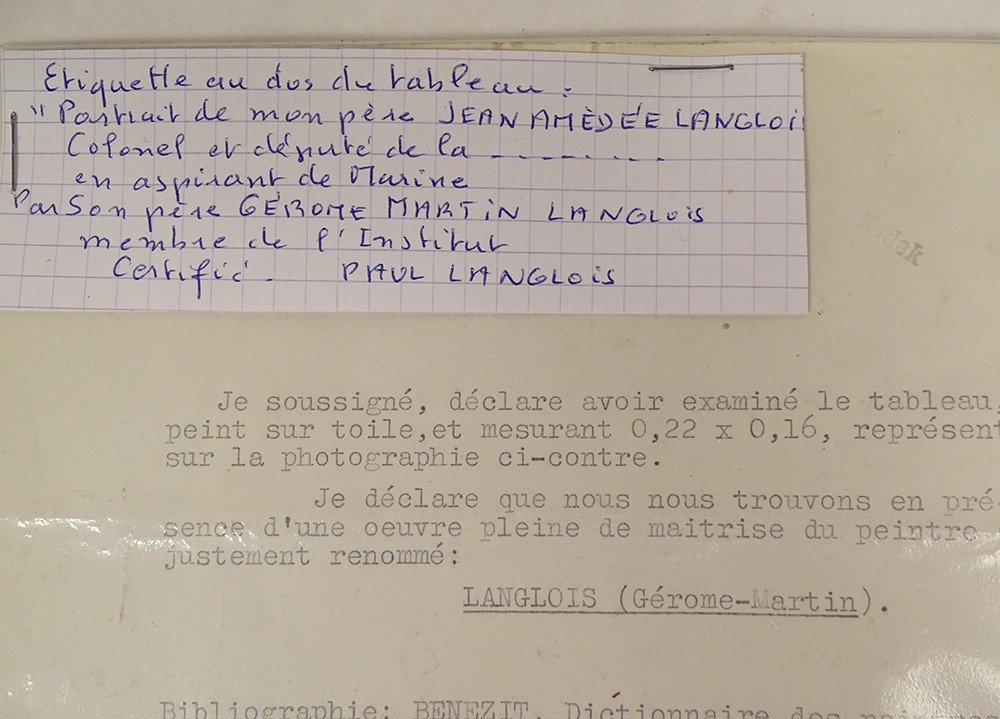 Etiquette au dos du tableau :
"Portrait de mon père JEAN AMÈDÉE LANGLOIS
Colonel et député de la - - - - - - - -
en aspirant de Marine
Par Son père GÉROME MARTIN LANGLOIS
membre de l'Institut
Certifié - PAUL LANGLOIS
dak
Je soussigné, déclare avoir examiné le tableau,
peint sur toile,et mesurant 0,22 x 0,16, représent
sur la photographie ci-contre.
Je déclare que nous nous trouvons en pré
sence d'une oeuvre pleine de maitrise du peintre
justement renommé:
LANGLOIS (Gérome-Martin).
Bibliographie: BENEZIT, Dictionnaire des